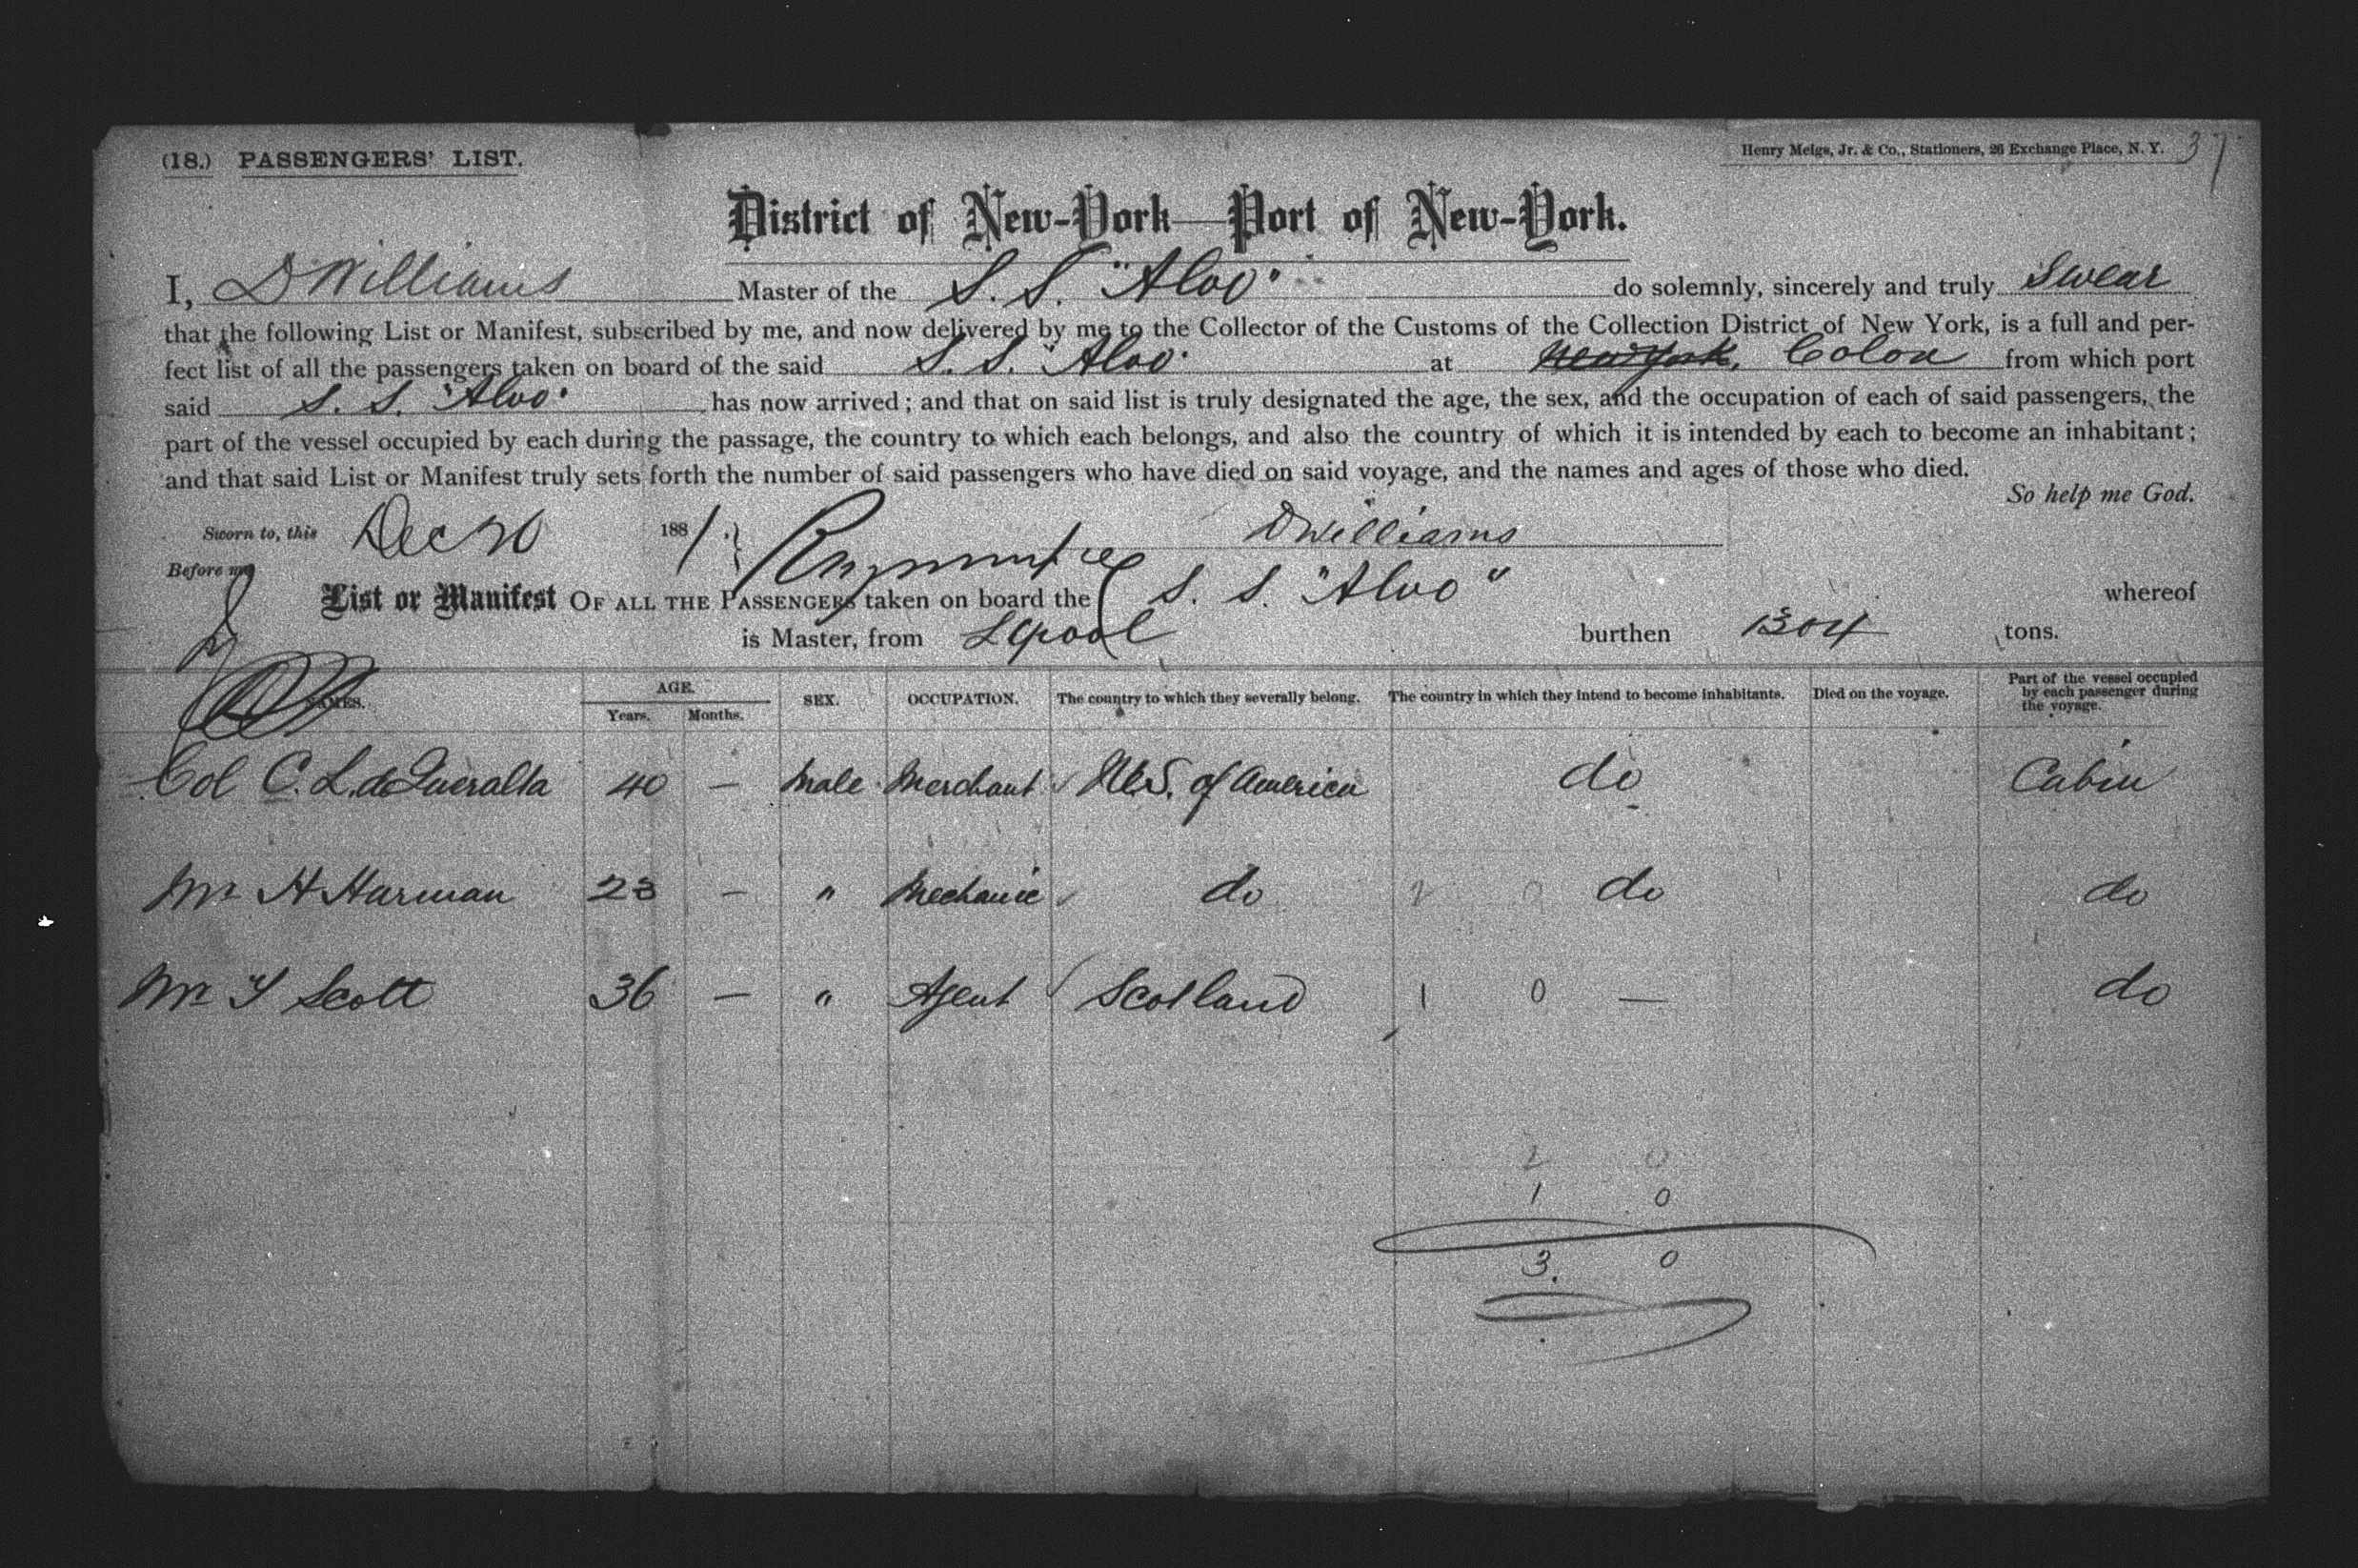 (18.) PASSENGERS' LIST.
Henry Meigs, Jr. & Co., Stationers, 26 Exchange Place, N. Y. 37
District of New-York—Port of New-York.
I, D Williams Master of the S. S. "Alvo" do solemnly, sincerely and truly Swear
that the following List or Manifest, subscribed by me, and now delivered by me to the Collector of the Customs of the Collection District of New York, is a full and per-
fect list of all the passengers taken on board of the said S. S. "Alvo" at New York, Colon from which port
said S. S. "Alvo" has now arrived; and that on said list is truly designated the age, the sex, and the occupation of each of said passengers, the
part of the vessel occupied by each during the passage, the country to which each belongs, and also the country of which it is intended by each to become an inhabitant;
and that said List or Manifest truly sets forth the number of said passengers who have died on said voyage, and the names and ages of those who died.
So help me God.
Sworn to, this Dec 1881 D Williams
Before me
List or Manifest OF ALL THE PASSENGERS taken on board the S. S. "Alvo" whereof
is Master, from L'pool burthen 1304 tons.
NAMES. AGE. Years. Months. SEX. OCCUPATION. The country to which they severally belong. The country in which they intend to become inhabitants. Died on the voyage. Part of the vessel occupied by each passenger during the voyage.
Col C. L. de Queralta 40 — Male Merchant U.S. of America do Cabin
Mr H Harman 23 — " Mechanic do 2 0 do do
Mr T Scott 36 — " Agent Scotland 1 0 — do
2 0
1 0
3 0